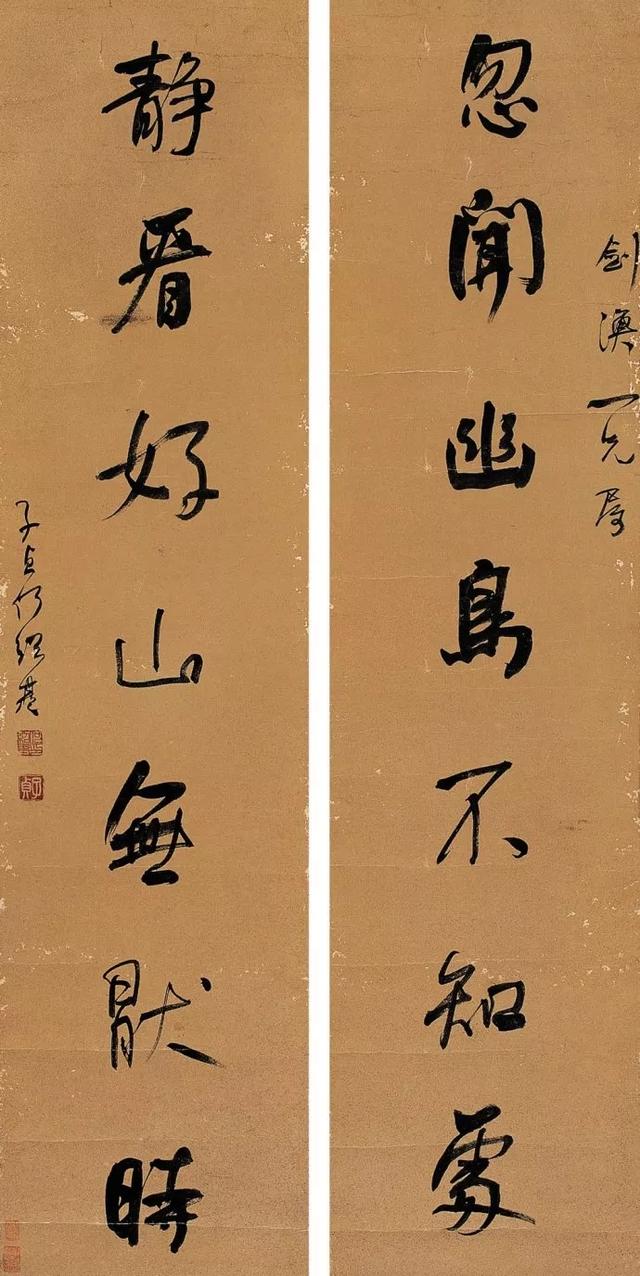 忽聞幽鳥不知處
劍潭一兄屬
靜看好山無猒時
子貞何紹基
子貞